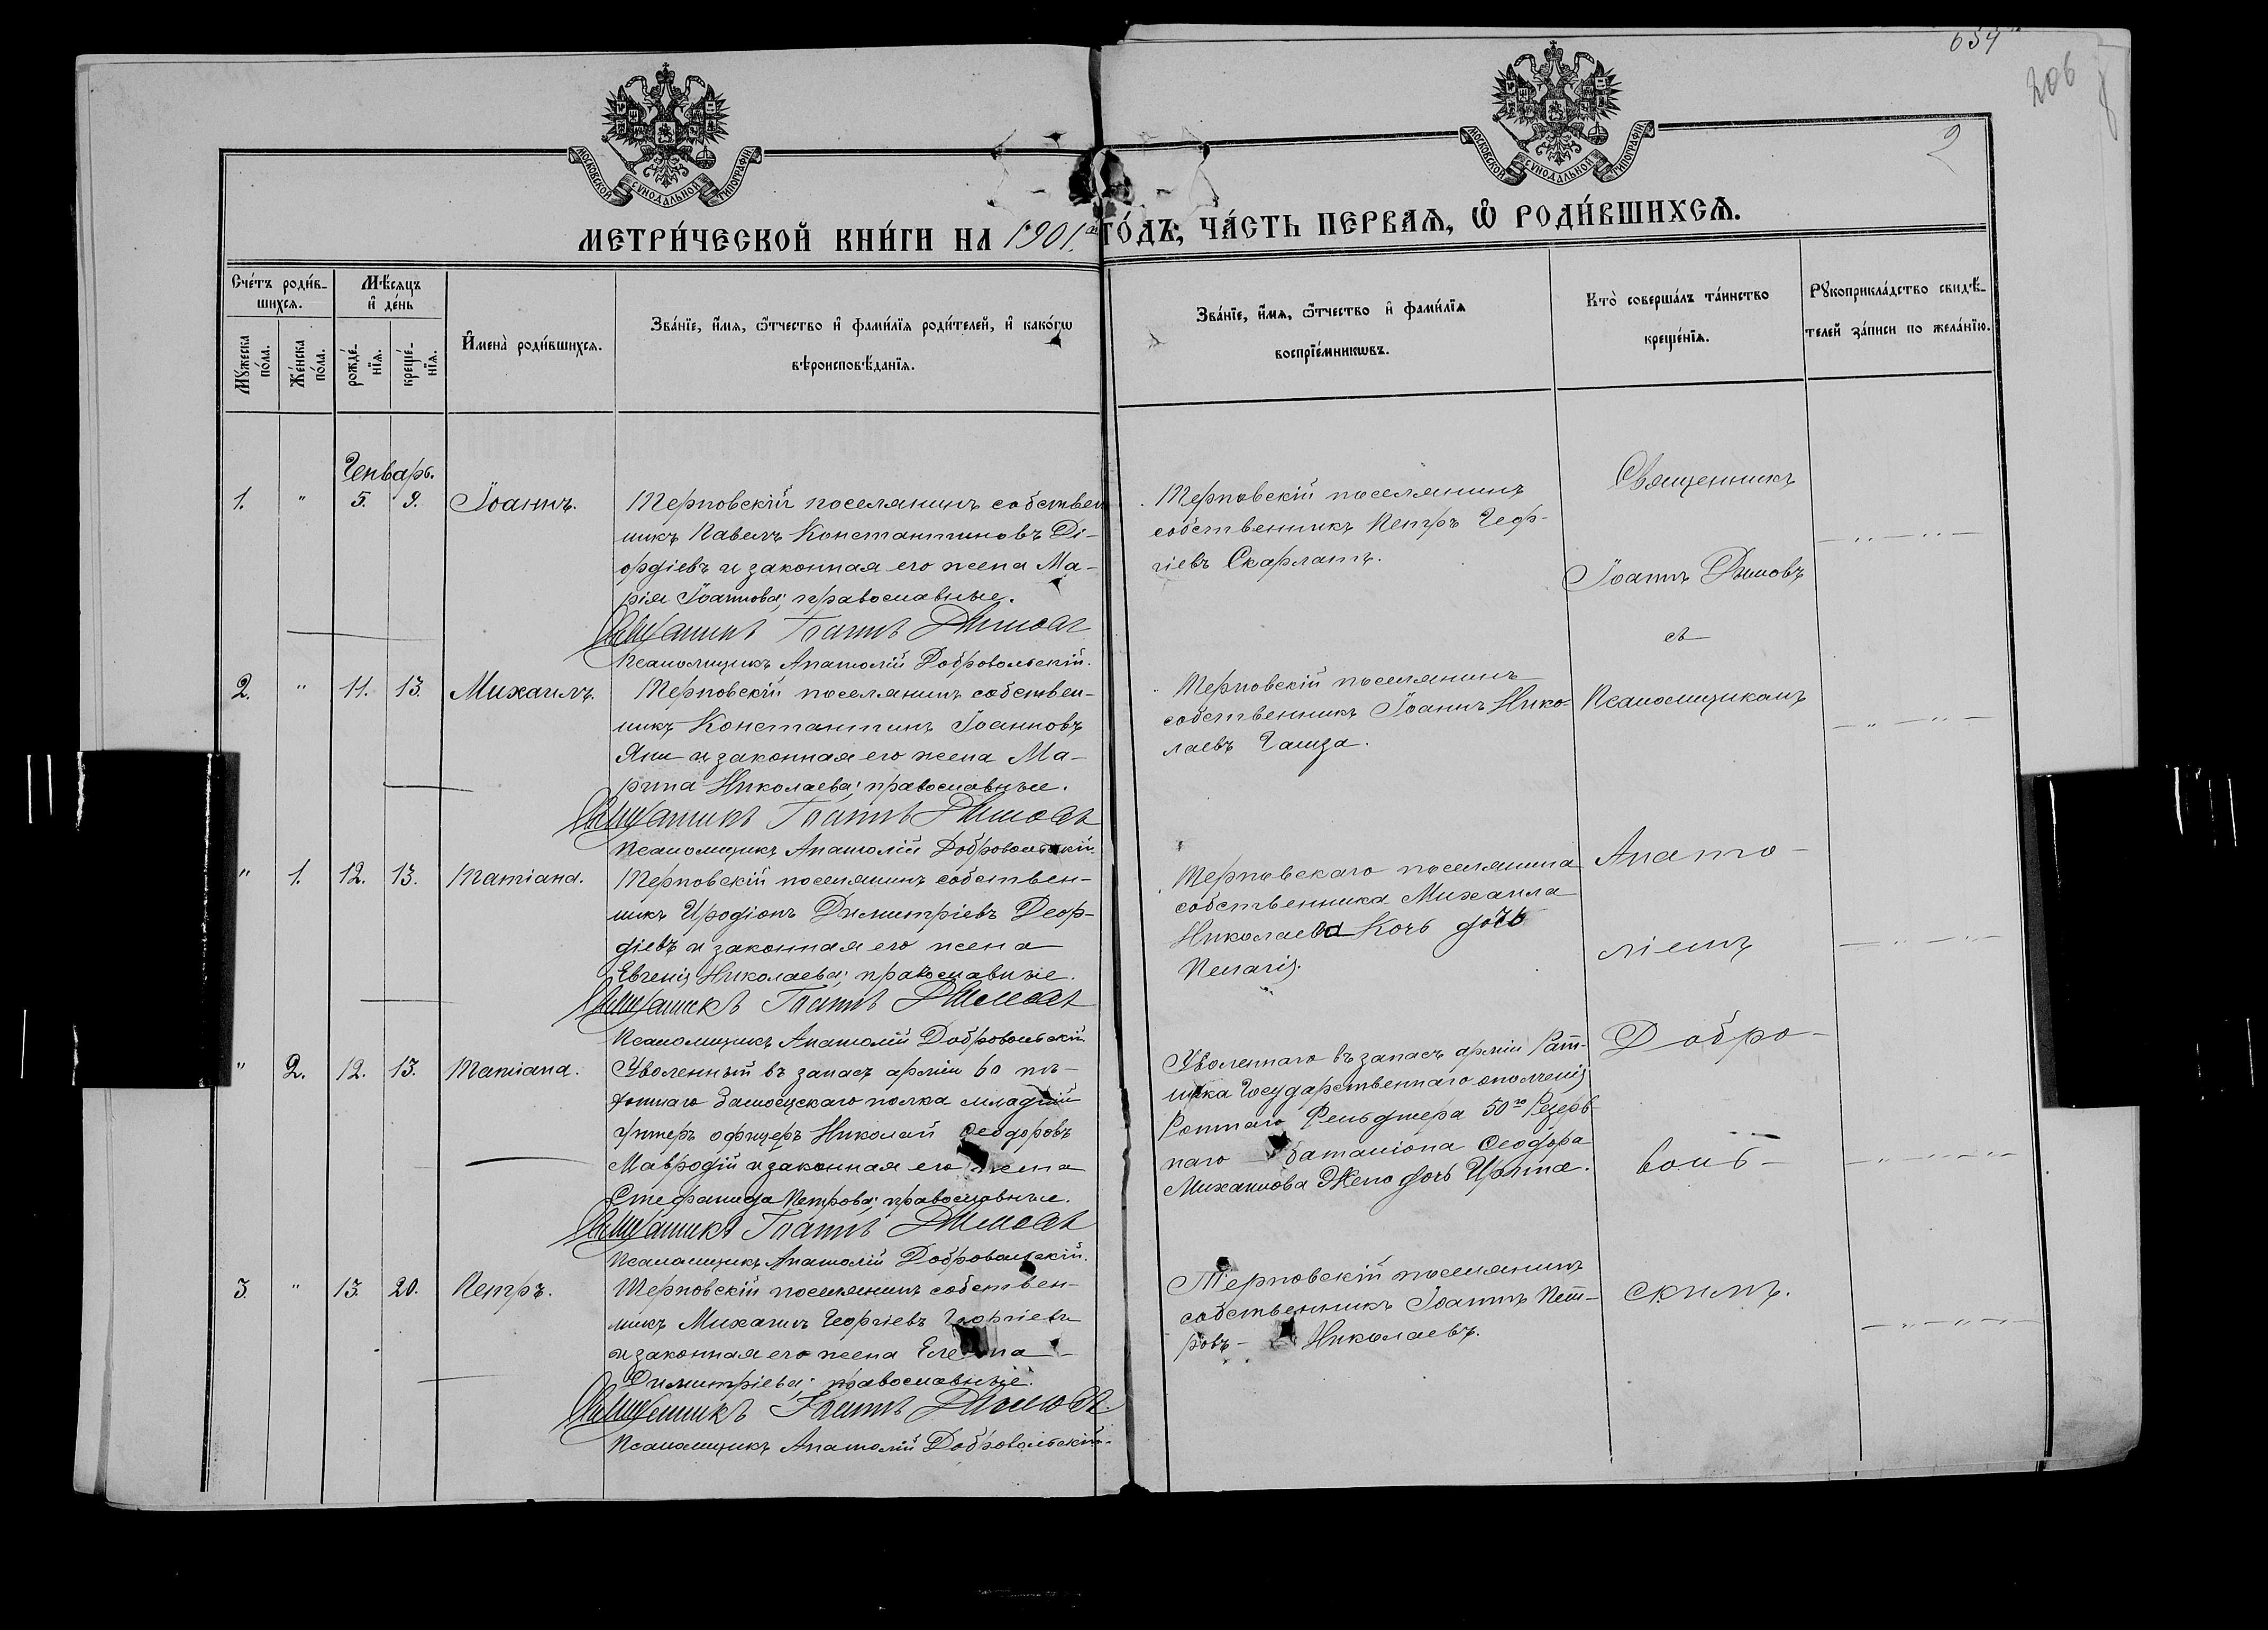 634
206
2
МОСКОВСКОЙ СѴНОДАЛЬНОЙ ТИПОГРАФІИ
МОСКОВСКОЙ СѴНОДАЛЬНОЙ ТИПОГРАФІИ
МЕТРИ́ЧЕСКОЙ КНИ́ГИ НА 1901. ГО́ДЪ, ЧА́СТЬ ПЕРВАѦ, Ѡ РОДИ́ВШИХСѦ.
Сче́тъ роди́в-
шихсѧ.
Мꙋжеска по́ла.
Же́нска по́ла.
Мѣ́сѧцъ
и҆ де́нь
рожде́-
нїѧ.
креще́-
нїѧ.
И҆мена̀ роди́вшихсѧ.
Зва́нїе, и҆́мѧ, ѻ҆́тчество и҆ фами́лїѧ роди́телей, и҆ како́гѡ
вѣроисповѣ́данїѧ.
Зва́нїе, и҆́мѧ, ѻ҆́тчество и҆ фами́лїѧ
воспрїе́мникѡвъ.
Кто̀ соверша́лъ та́инство
креще́нїѧ.
Рꙋкоприкла́дство свидѣ́-
телей за́писи по жела́нїю.
Генварь.
1. " 5. 9. Іоаннъ.
Терповскій поселянинъ собствен
никъ Павелъ Константиновъ Ді-
ордіевъ и законная его жена Ма-
рія Іоаннова; православные.
Священникъ Іоаннъ Димовъ
Псаломщикъ Анатолій Добровольскій.
Терповскій поселянинъ
собственникъ Петръ Геор-
гіевъ Скарлатъ.
2. " 11. 13. Михаилъ.
Терповскій поселянинъ собствен-
никъ Константинъ Іоанновъ
Яни и законная его жена Ма-
рина Николаева; православные.
Священникъ Іоаннъ Димовъ
Псаломщикъ Анатолій Добровольскій.
Терповскій поселянинъ
собственникъ Іоаннъ Нико-
лаевъ
" 1. 12. 13. Татіана.
Терповскій поселянинъ собствен-
никъ Иродіонъ Димитріевъ Деор-
діевъ и законная его жена
Евгенія Николаева; православные.
Священникъ Іоаннъ Димовъ
Псаломщикъ Анатолій Добровольскій
Терповскаго поселянина
собственника Михаила
Николаева Кочь дочь
Пелагія.
" 2. 12. 13. Татіана.
Уволенный въ запасъ арміи 60 пѣ-
хотнаго Замосцскаго полка младшій
Унтеръ офицеръ Николай Ѳеодоровъ
Мавродій и законная его жена
Стефанида Петрова; православные.
Священникъ Іоаннъ Димовъ
Псаломщикъ Анатолій Добровольскій.
Уволеннаго въ запасъ арміи Рат-
ника Государственнаго ополченія
Ротнаго Фельдшера 50го Резерв-
наго баталіона Ѳеодора
Михаилова Жепо дочь Ирина.
3. " 13. 20. Петръ.
Терповскій поселянинъ собствен-
никъ Михаилъ Георгіевъ Георгіевъ
и законная его жена Елена
Димитріева; православные.
Священникъ Іоаннъ Димовъ.
Псаломщикъ Анатолій Добровольскій.
Терповскій поселянинъ
собственникъ Іоаннъ Пет-
ровъ- Николаевъ.
Священникъ
Іоаннъ Димовъ
съ
Псаломщикомъ
Анато-
ліемъ
Добро-
воль-
скимъ.